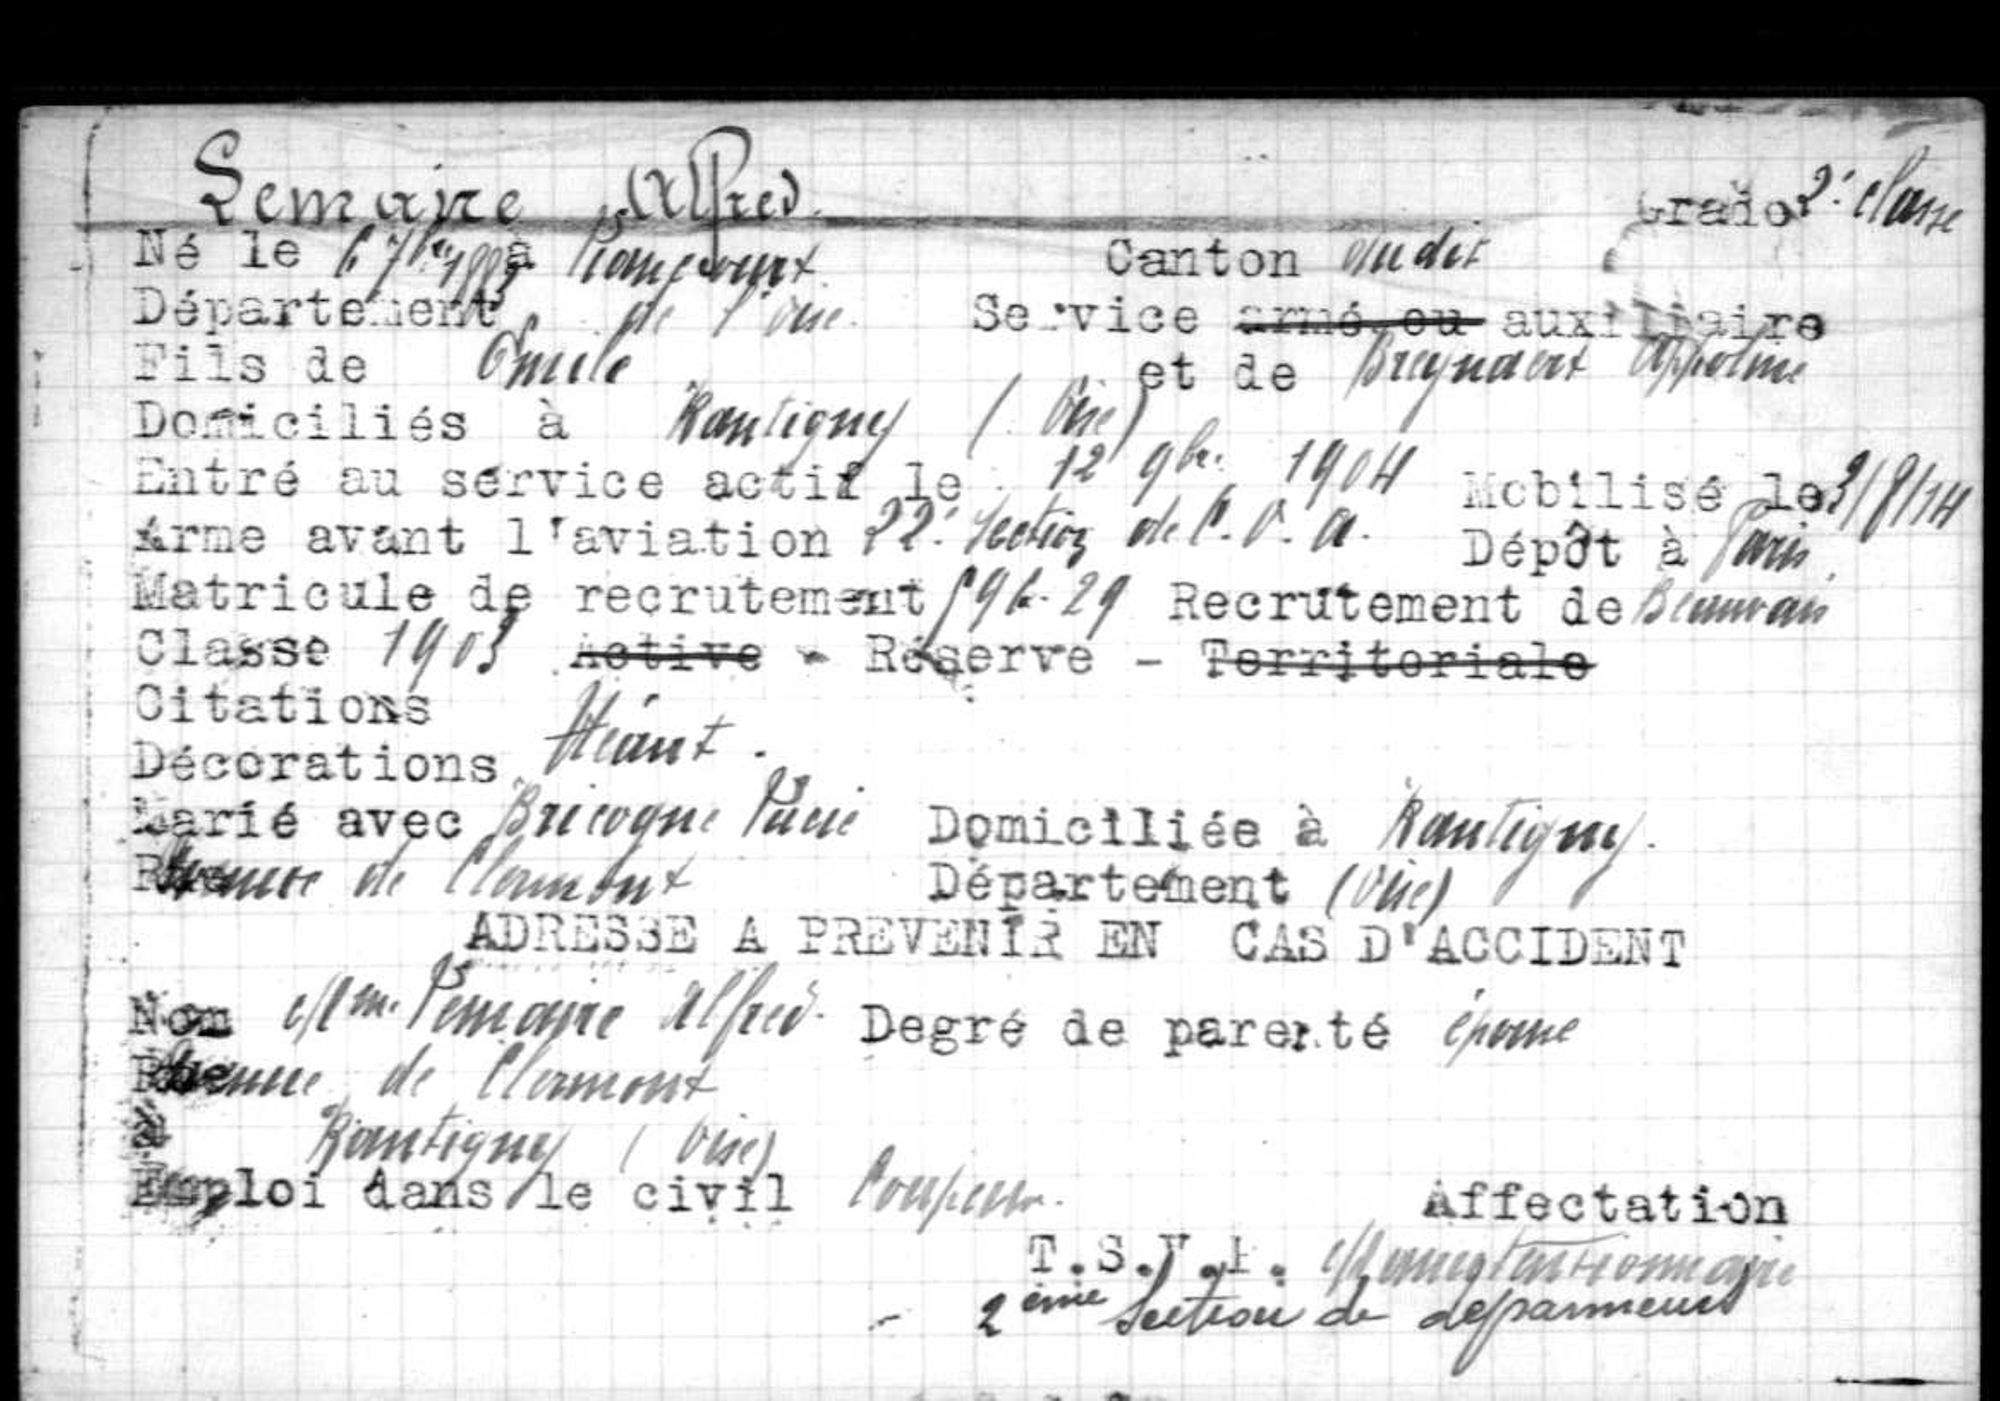 Lemaire Alfred.
Grade 2e classe
Né le 6 7bre 1883 à Liancourt Canton dudit
Département de l'Oise. Service ~~armé ou~~ auxiliaire
Fils de Emile et de Breynaert Appoline
Domiciliés à Rantigny (Oise)
Entré au service actif le 12 9bre 1904 Mobilisé le 3/8/14
Arme avant l'aviation 22e Section de C.O.A. Dépôt à Paris.
Matricule de recrutement 29 Recrutement de Beauvais
Classe 1903 ~~Active~~ - Réserve - ~~Territoriale~~
Citations
Décorations Néant.
Marié avec Bricogne Lucie Domiciliée à Rantigny.
Avenue de Clermont Département (Oise)
ADRESSE A PREVENIR EN CAS D'ACCIDENT
Nom Mme Lemaire Alfred. Degré de parenté épouse
Avenue de Clermont
Rantigny (Oise)
Emploi dans le civil Coupeur.
Affectation
T.S.V.I. Manutentionnaire
2ème Section de dépanneurs